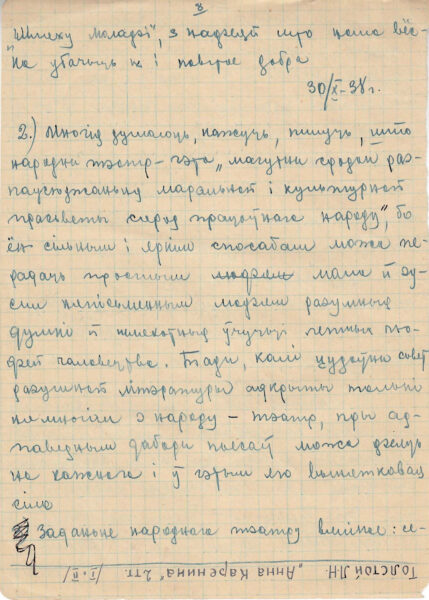 8
„Шляху Моладзі", з надзеяй што наша вёс-
ка убачыць яе і павітае добра
30/X-38 г.
2.) Многія думаюць, кажуць, пішуць, што
народны тэатр – гэта „магутны сродак рас-
паўсюджаньня маральнай і культурнай
прасьветы сярод працоўнага народу", бо
ён сільным і яркім спосабам можа пе-
радаць простым людзям мала й зу-
сім непісьменным людзям разумныя
думкі й шляхотныя ўчуцьці лепшых лю-
дзей чалавецтва. Тады, калі цудоўны сьвет
разумнай літэратуры адкрыты толькі
нямногім з народу – тэатр, пры ад-
паведным дабары пьесаў можа дзеяць
на кажнага і ў гэтым яго выняткавая
сіла
Заданьне народнага тэатру вялікае: ся-
Толстой Л.Н. „Анна Каренина" 2 тт. /I и II/